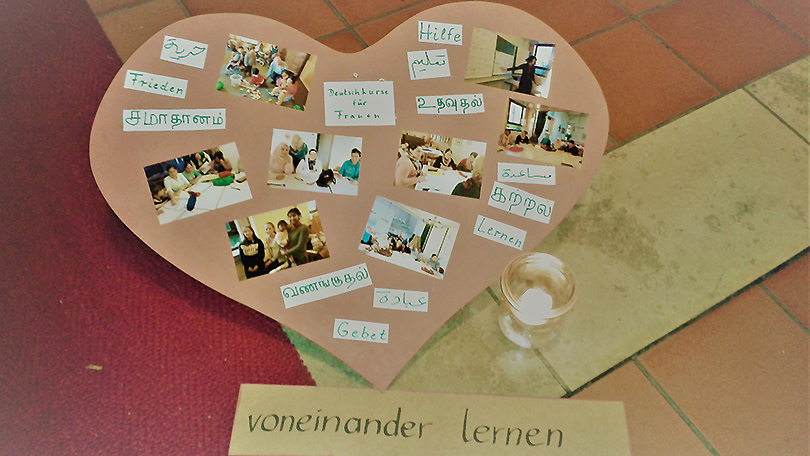 حرية
Frieden
சமாதானம்
Deutschkurse
für
Frauen
Hilfe
تعليم
உதவுதல்
مساعدة
கற்றல்
Lernen
வணங்குதல்
عبادة
Gebet
voneinander lernen